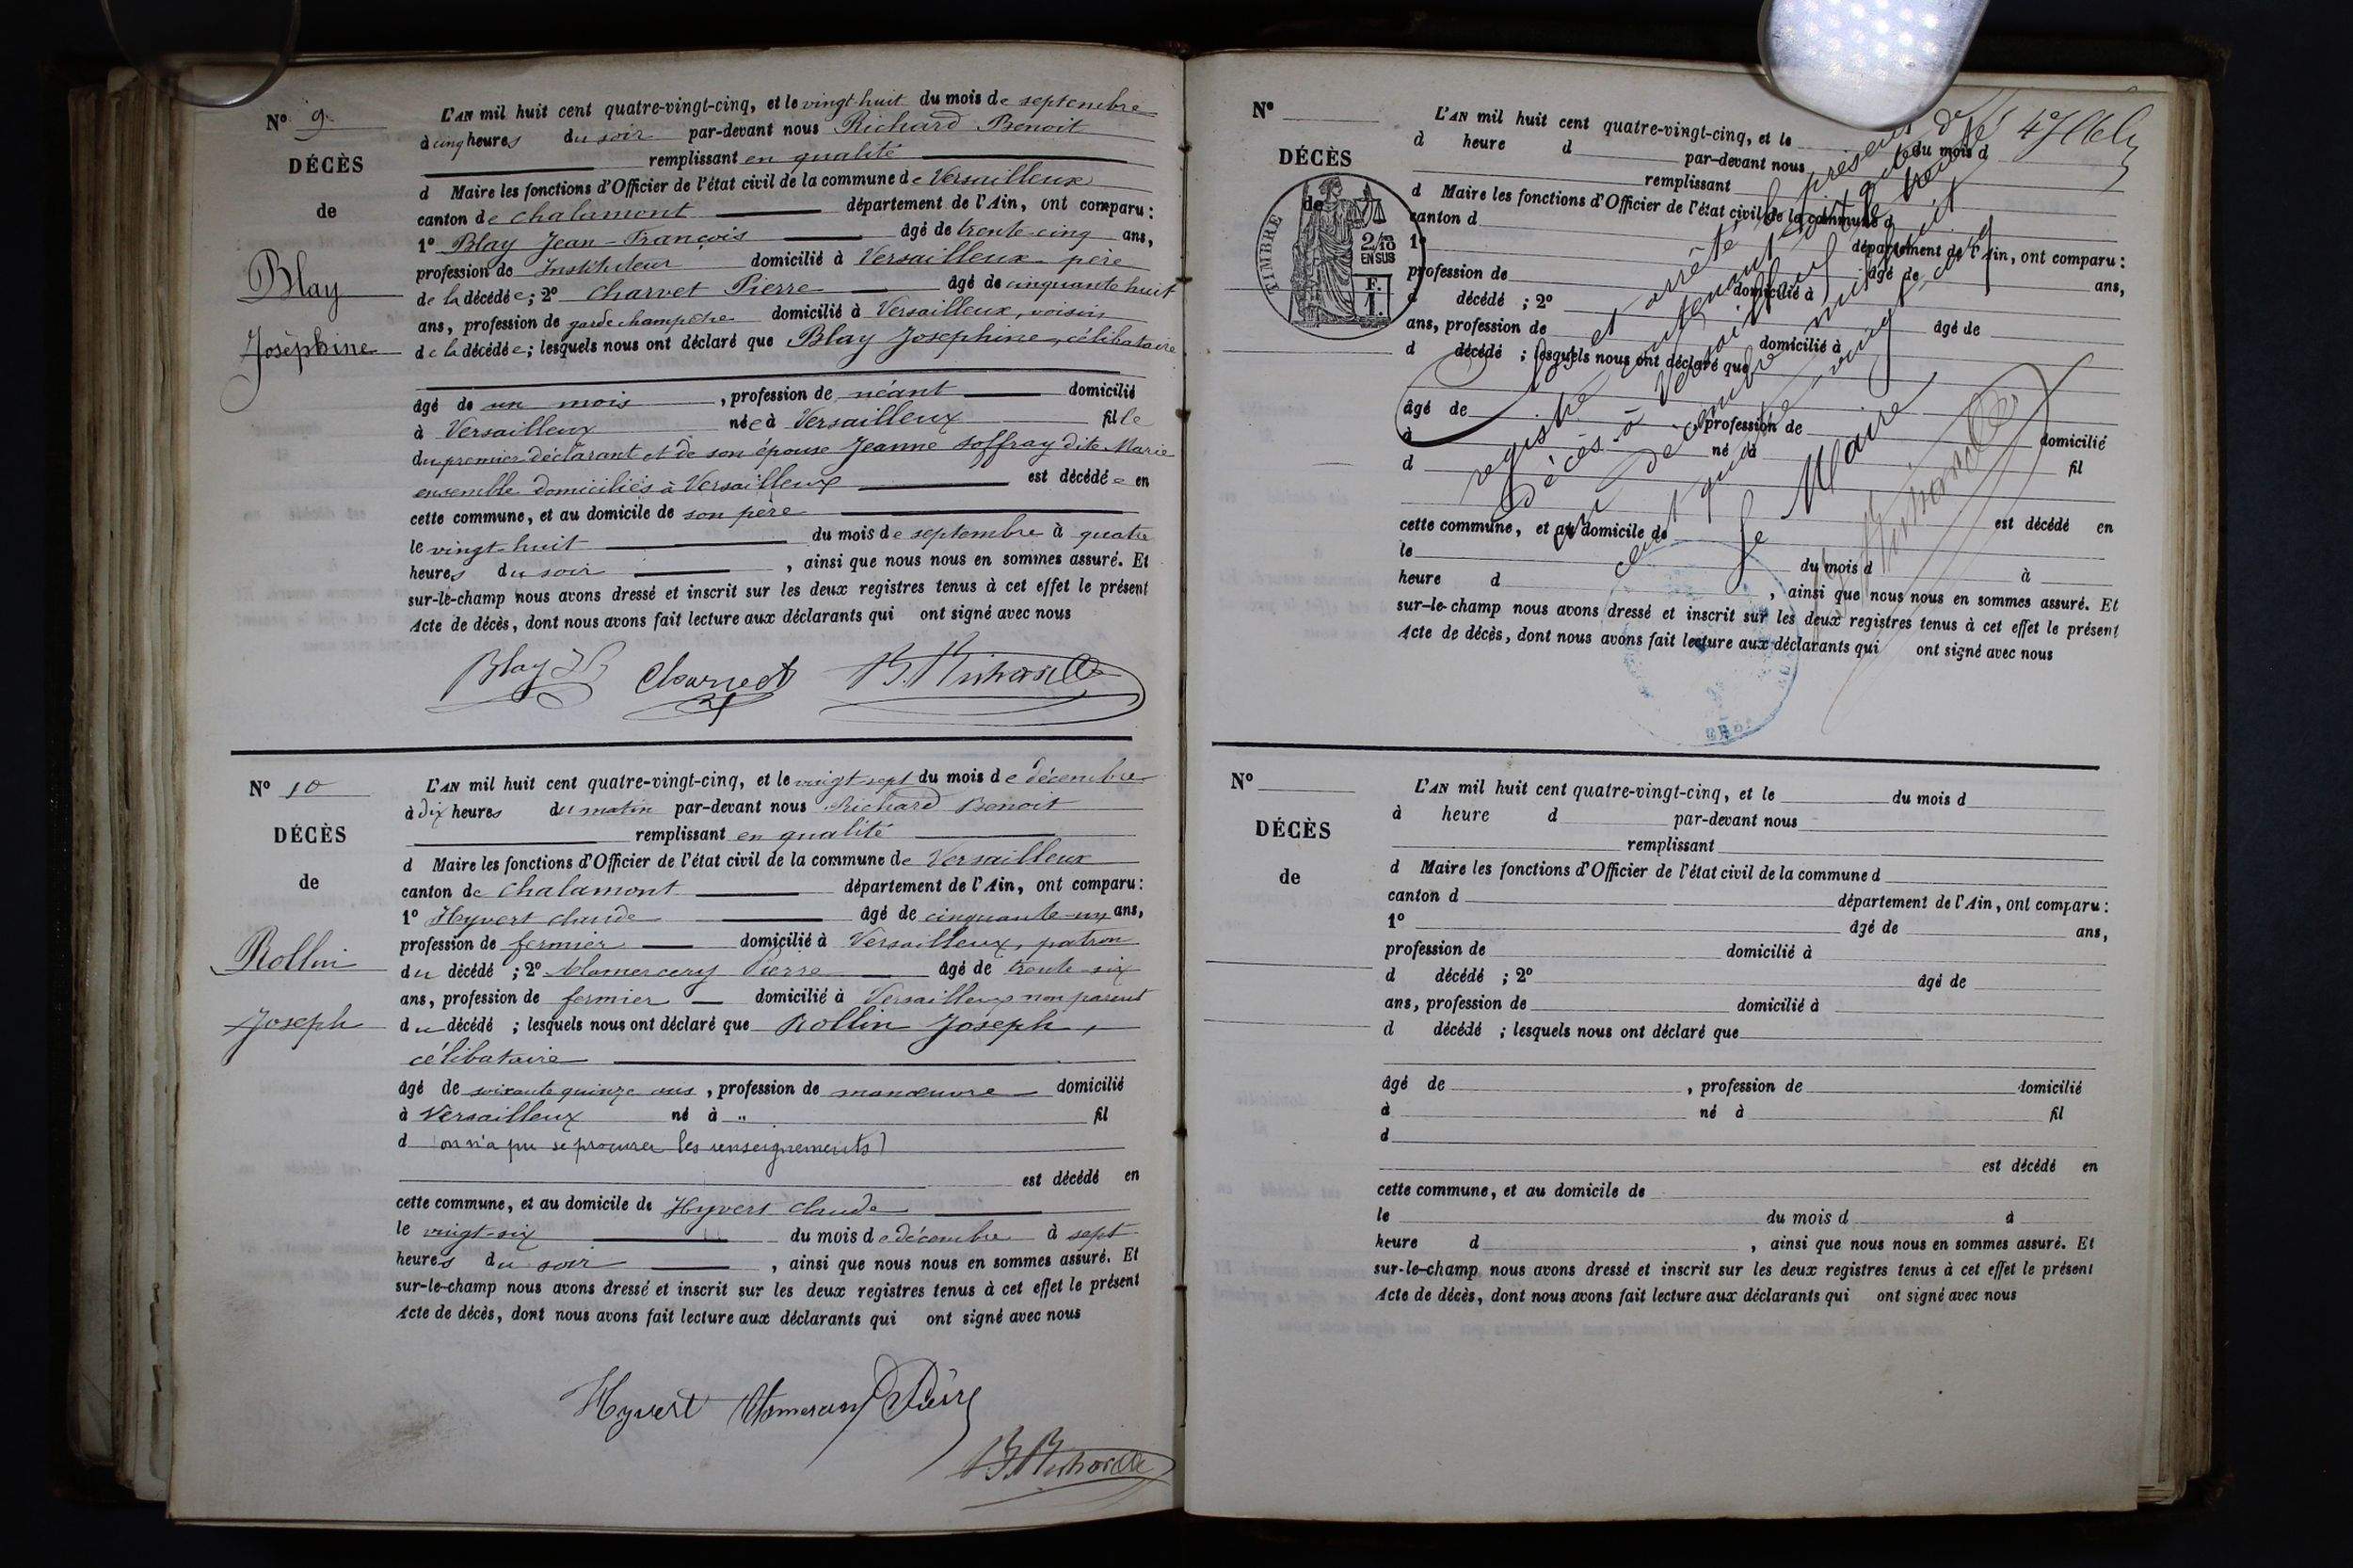 N° 9
DÉCÈS
de
Blay
Joséphine
L'AN mil huit cent quatre-vingt-cinq, et le vingt-huit du mois de septembre
à cinq heures du soir par-devant nous Richard Benoit
remplissant en qualité
d Maire les fonctions d'Officier de l'état civil de la commune de Versailleux
canton de Chalamont département de l'Ain, ont comparu :
1° Blay Jean-François âgé de trente-cinq ans,
profession de Instituteur domicilié à Versailleux père
de la décédée ; 2° Charvet Pierre âgé de cinquante huit
ans, profession de garde champêtre domicilié à Versailleux, voisin
de la décédée ; lesquels nous ont déclaré que Blay Josephine, célibataire
âgé de un mois , profession de néant domicilié
à Versailleux née à Versailleux fille
du premier déclarant et de son épouse Jeanne Joffray dite Marie
ensemble domiciliés à Versailleux est décédée en
cette commune, et au domicile de son père
le vingt-huit du mois de septembre à quatre
heures du soir , ainsi que nous nous en sommes assuré. Et
sur-le-champ nous avons dressé et inscrit sur les deux registres tenus à cet effet le présent
Acte de décès, dont nous avons fait lecture aux déclarants qui ont signé avec nous
Blay Charvet B. Richard
N° 10
DÉCÈS
de
Rollin
Joseph
L'AN mil huit cent quatre-vingt-cinq, et le vingt-sept du mois de décembre
à dix heures du matin par-devant nous Richard Benoit
remplissant en qualité
d Maire les fonctions d'Officier de l'état civil de la commune de Versailleux
canton de Chalamont département de l'Ain, ont comparu :
1° Hyvert Claude âgé de cinquante-un ans,
profession de fermier domicilié à Versailleux, patron
du décédé ; 2° Mamercery Pierre âgé de trente-six
ans, profession de fermier domicilié à Versailleux non parent
du décédé ; lesquels nous ont déclaré que Rollin Joseph,
célibataire
âgé de soixante quinze ans , profession de manœuvre domicilié
à Versailleux né à " fil
d (on n'a pu se procurer les renseignements)
est décédé en
cette commune, et au domicile de Hyvert Claude
le vingt-six du mois de décembre à sept
heures du soir , ainsi que nous nous en sommes assuré. Et
sur-le-champ nous avons dressé et inscrit sur les deux registres tenus à cet effet le présent
Acte de décès, dont nous avons fait lecture aux déclarants qui ont signé avec nous
Hyvert Pierre
B. Richard
N°
DÉCÈS
de
TIMBRE
2/10
EN SUS
F.
1.
L'AN mil huit cent quatre-vingt-cinq, et le du mois d
d heure d par-devant nous
remplissant
d Maire les fonctions d'Officier de l'état civil de la commune d
canton d département de l'Ain, ont comparu :
1° âgé de ans,
profession de domicilié à
d décédé ; 2° âgé de
ans, profession de domicilié à
d décédé ; lesquels nous ont déclaré que
âgé de , profession de domicilié
à né à fil
d
est décédé en
cette commune, et au domicile de
le du mois d à
heure d , ainsi que nous nous en sommes assuré. Et
sur-le-champ nous avons dressé et inscrit sur les deux registres tenus à cet effet le présent
Acte de décès, dont nous avons fait lecture aux déclarants qui ont signé avec nous
et arrêté le présent
registre contenant
décès à Versailleux le trente
un décembre mil huit
cent quatre-vingt-cinq
Le Maire
B. Richard
N°
DÉCÈS
de
L'AN mil huit cent quatre-vingt-cinq, et le du mois d
à heure d par-devant nous
remplissant
d Maire les fonctions d'Officier de l'état civil de la commune d
canton d département de l'Ain, ont comparu :
1° âgé de ans,
profession de domicilié à
d décédé ; 2° âgé de
ans, profession de domicilié à
d décédé ; lesquels nous ont déclaré que
âgé de , profession de domicilié
à né à fil
d
est décédé en
cette commune, et au domicile de
le du mois d à
heure d , ainsi que nous nous en sommes assuré. Et
sur-le-champ nous avons dressé et inscrit sur les deux registres tenus à cet effet le présent
Acte de décès, dont nous avons fait lecture aux déclarants qui ont signé avec nous